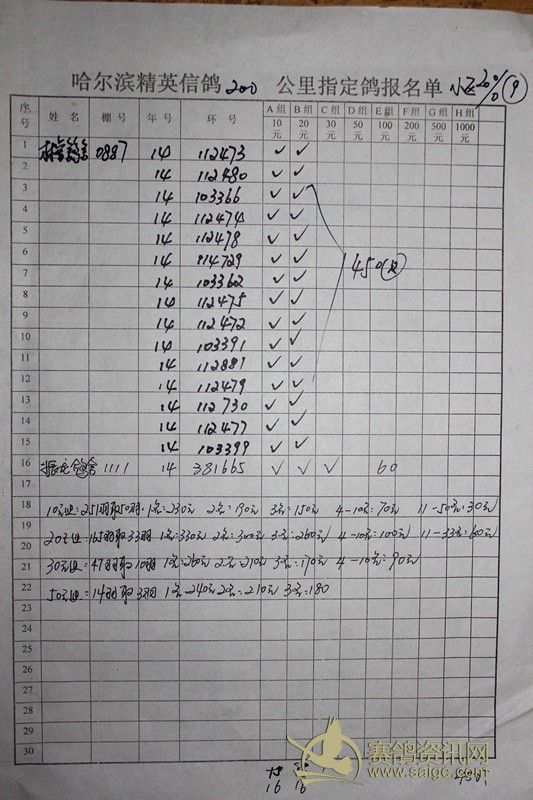 哈尔滨精英信鸽 200 公里指定鸽报名单 20% 9
序号 姓名 棚号 年号 环号 A组 10元 B组 20元 C组 30元 D组 50元 E组 100元 F组 200元 G组 500元 H组 1000元
1 0887 14 112473 ✓ ✓
2 14 112480 ✓ ✓
3 14 103366 ✓ ✓
4 14 112474 ✓ ✓
5 14 112478 ✓ ✓
6 14 114729 ✓ ✓ 450
7 14 103362 ✓ ✓
8 14 112475 ✓ ✓
9 14 112472 ✓ ✓
10 14 103391 ✓ ✓
11 14 112881 ✓ ✓
12 14 112479 ✓ ✓
13 14 112730 ✓ ✓
14 14 112477 ✓ ✓
15 14 103399 ✓ ✓
16 1111 14 381665 ✓ ✓ ✓ 60
17
18 10元组:251羽取50羽 1名:230元 2名:190元 3名:150元 4-10名:70元 11-50名:30元
19
20 20元组:165羽取33羽 1名:330元 2名:300元 3名:260元 4-10名:100元 11-33名:60元
21 30元组:47羽取10羽 1名:260元 2名:210元 3名:170元 4-10名:90元
22 50元组:14羽取3羽 1名:240元 2名:210元 3名:180
23
24
25
26
27
28
29
30
赛鸽资讯网
www.saige.com
16 16